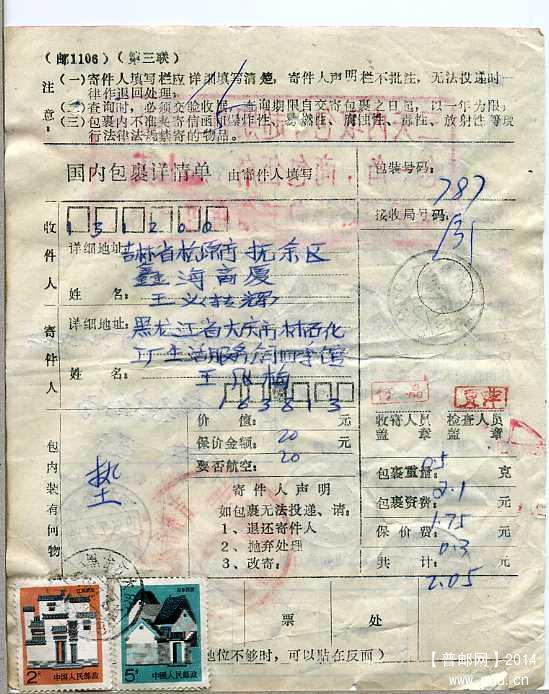 (邮1106)(第三联)
注意:
(一)寄件人填写栏应详细填写清楚,寄件人声明栏不批注,无法投递时一
律作退回处理,
(二)查询时,必须交验收据,查询期限自交寄包裹之日起,以一年为限;
(三)包裹内不准夹寄信函和爆炸性、易燃性、腐蚀性、毒性、放射性等或
行法律法规禁寄的物品。
国内包裹详情单 由寄件人填写
包装号码:
787
接收局号码:
131
收件人
131200
详细地址:
吉林省松原市扶余区
鑫海商厦
姓 名:
寄件人
详细地址:
黑龙江省大庆市林石化
姓 名:
王凤梅
163813
包内装有何物
垫
价 值: 元
保价金额: 20 元
要否航空: 20
寄件人声明
如包裹无法投递、请:
1、退还寄件人
2、抛弃处理
3、改寄:
收寄人员
盖 章
检查人员
盖 章
夏萍
包裹重量: 0.5 克
包裹资费: 2.1 元
保价费: 1.75 元
0.3
共 计: 元
2.05
票 处
地位不够时,可以贴在反面)
2分
中国人民邮政
5分
中国人民邮政
【普邮网】2014